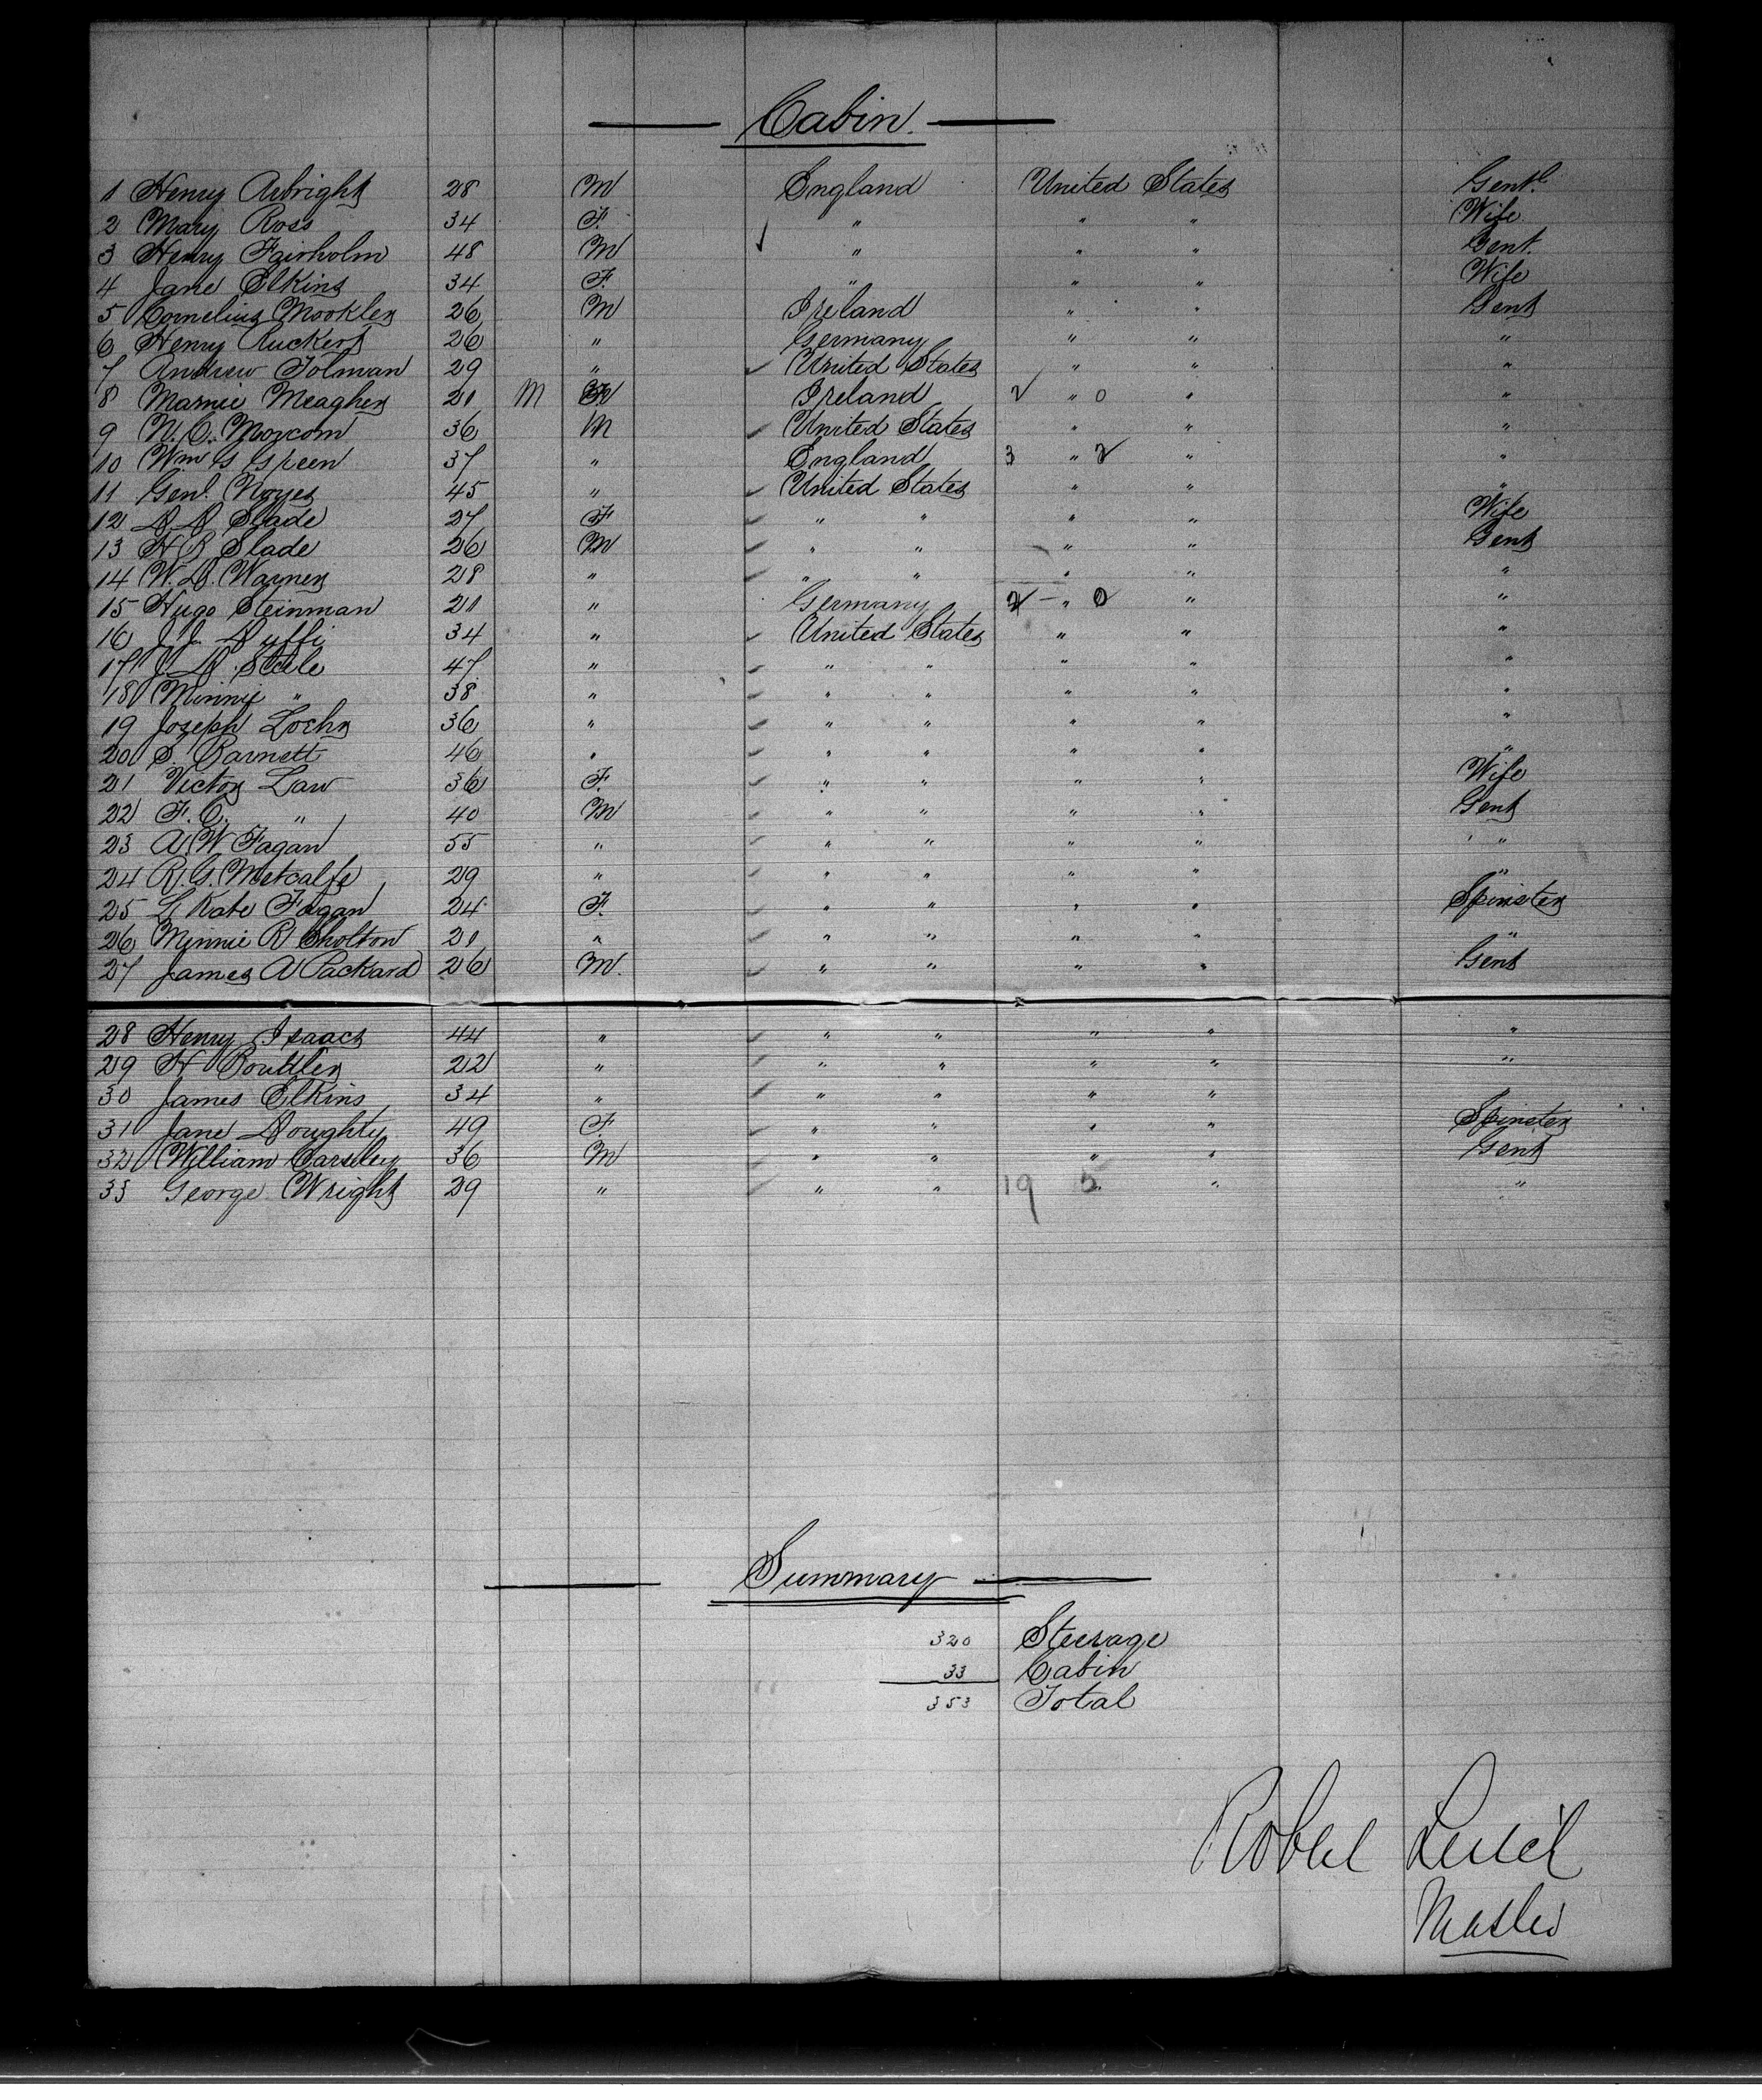 Cabin.
1 Henry Arbright 28 M England United States Gentl
2 Mary Ross 34 F. " " " Wife
3 Henry Fairholm 48 M " " " Gent.
4 Jane Elkins 34 F. " " " Wife
5 Cornelius Mookler 26 M Ireland " " Gent
6 Henry Ruckert 26 " Germany " " "
7 Andrew Tolman 29 " United States " " "
8 Marnie Meagher 21 M Ireland 2 " 0 " "
9 N. C. Morcom 36 M United States " " "
10 Wm G Green 37 " England 3 " 2 " "
11 Genl. Noyes 45 " United States " " "
12 D. D. Slade 27 F " " " " Wife
13 H R Slade 26 M " " " " Gent
14 W. D. Warner 28 " " " " " "
15 Hugo Steinman 21 " Germany 2 " 0 " "
16 J. J. Duffi 34 " United States " " "
17 J. D. Steele 47 " " " " " "
18 Minnie " 38 " " " " " "
19 Joseph Lochr 36 " " " " " "
20 S. Barnett 46 " " " " " "
21 Victor Law 36 F. " " " " Wife
22 F. C. " 40 M " " " " Gent
23 A. W. Fagan 55 " " " " " "
24 R. G. Metcalfe 29 " " " " " "
25 L Kate Fagan 24 F. " " " " Spinster
26 Minnie R Sholton 21 " " " " " "
27 James A Packard 26 M. " " " " Gent
28 Henry Isaacs 44 " " " " " "
29 H Boutller 22 " " " " " "
30 James Elkins 34 " " " " " "
31 Jane Doughty 49 F. " " " " Spinster
32 William Carseley 36 M " " " " Gent
33 George Wright 29 " " " 19 5 " "
Summary
320 Steerage
33 Cabin
353 Total
Robert Leitch
Master